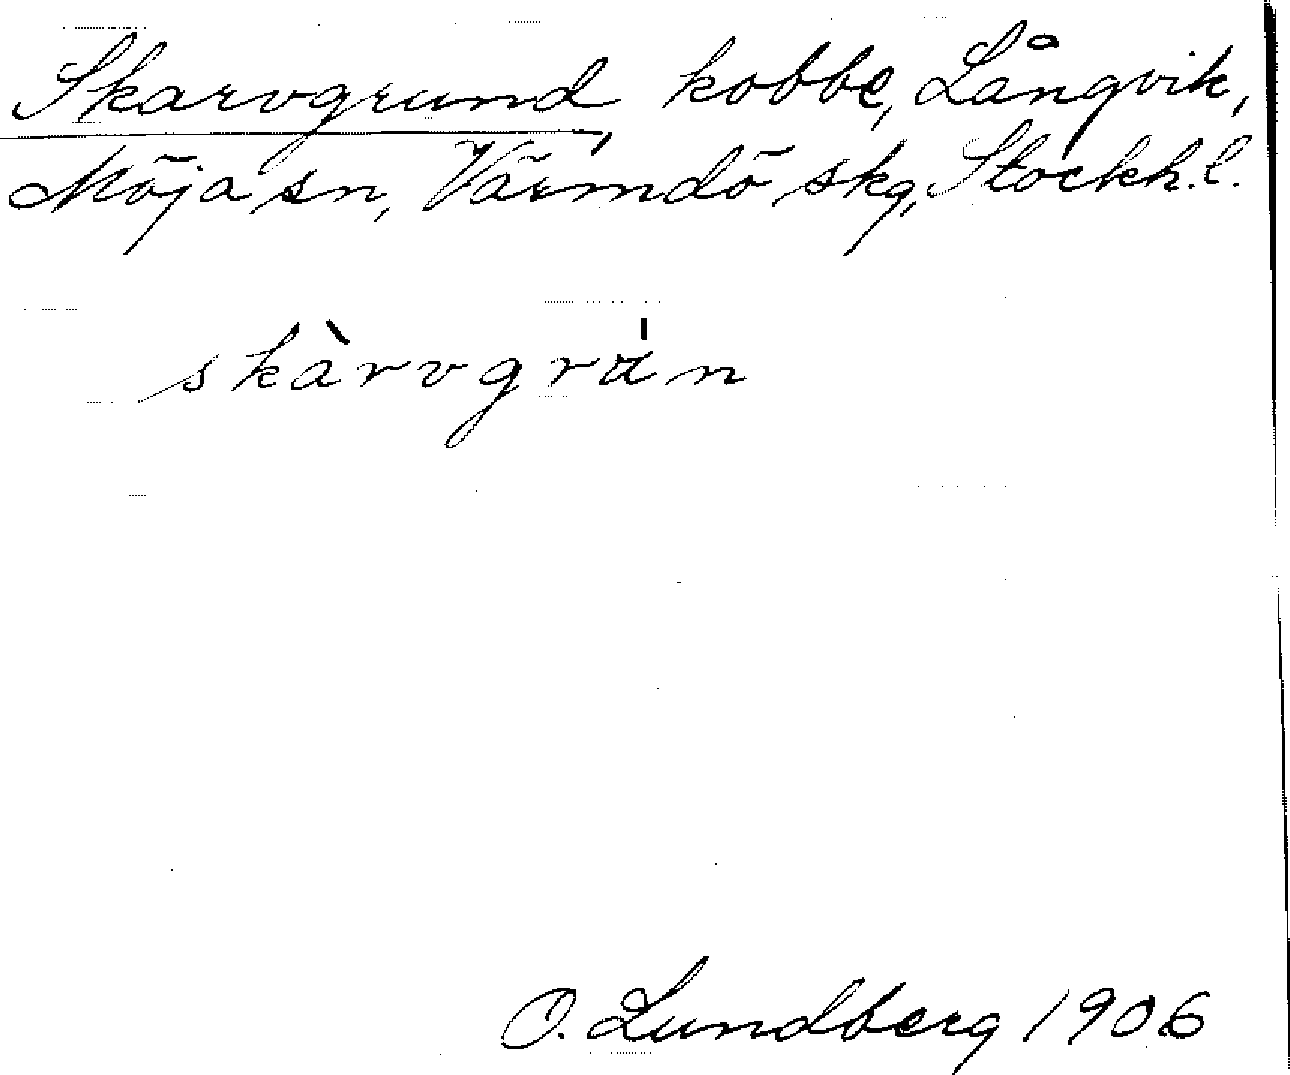 Skarvgrund, kobbe, Långvik,
Möja sn, Värmdö skg, Stockh. l.
skàrvgrun
O. Lundberg 1906